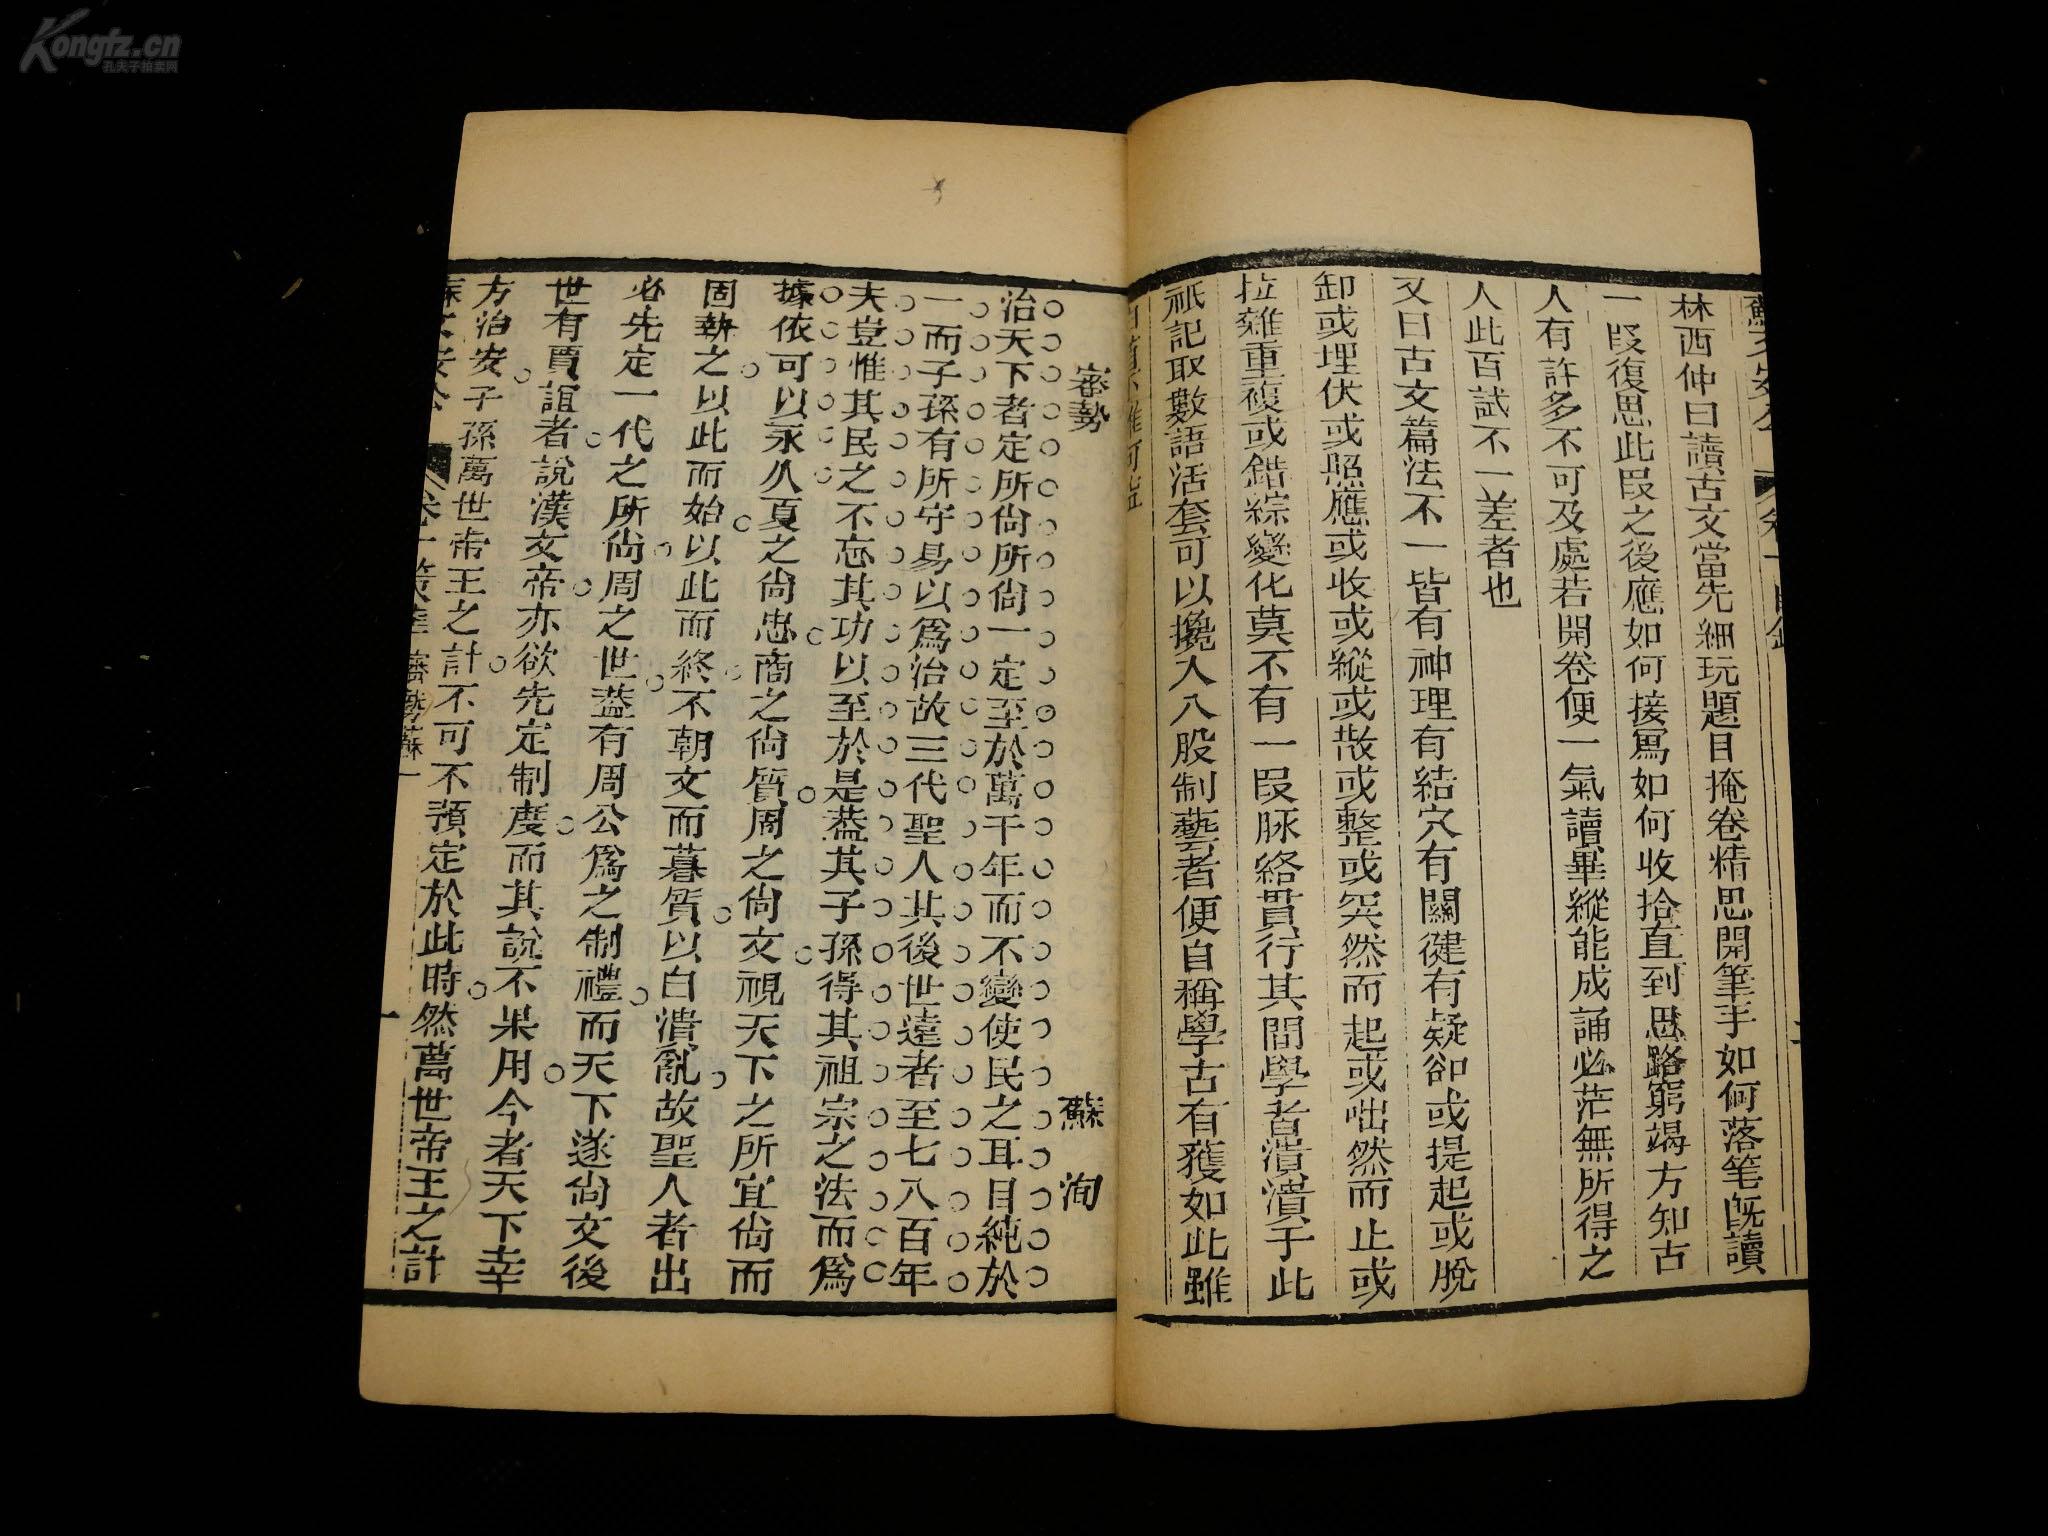 Kongfz.cn
孔夫子拍卖网
林西仲曰讀古文當先細玩題目掩卷精思開筆手如何落笔既讀
一段復思此段之後應如何接寫如何收拾直到思路窮竭方知古
人有許多不可及處若開卷便一氣讀畢縱能成誦必茫無所得之
人此百試不一差者也
又曰古文篇法不一皆有神理有結穴有關鍵有疑卻或提起或脫
卸或埋伏或照應或收或縱或散或整或突然而起或咄然而止或
拉雜重複或錯綜變化莫不有一段脉絡貫行其間學者潰潰于此
祇記取數語活套可以攙入八股制藝者便自稱學古有獲如此雖
審勢
蘇洵
治天下者定所尚所尚一定至於萬千年而不變使民之耳目純於
一而子孫有所守易以爲治故三代聖人其後世遠者至七八百年
夫豈惟其民之不忘其功以至於是蓋其子孫得其祖宗之法而爲
據依可以永久夏之尚忠商之尚質周之尚文視天下之所宜尚而
固執之以此而始以此而終不朝文而暮質以自潰亂故聖人者出
必先定一代之所尚周之世蓋有周公爲之制禮而天下遂尚文後
世有賈誼者說漢文帝亦欲先定制度而其說不果用今者天下幸
方治安子孫萬世帝王之計不可不預定於此時然萬世帝王之計
卷一 審勢 蘇 一